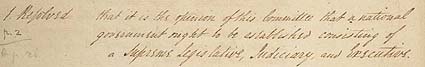 1 Resolved that it is the opinion of this Committee that a national
p. 2 government ought to be established consisting of
a Supreme Legislative, Judiciary, and Executive.